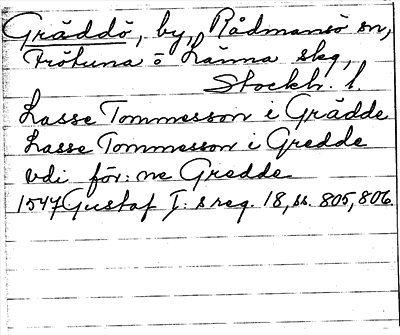 Gräddö, by, Rådmansö sn,
Frötuna o Länna skg,
Stockh. l
Lasse Tommesson i Grädde
Lasse Tommesson i Gredde
vdi för: ne Gredde
1547 Gustaf I: s reg. 18, ss. 805, 806.